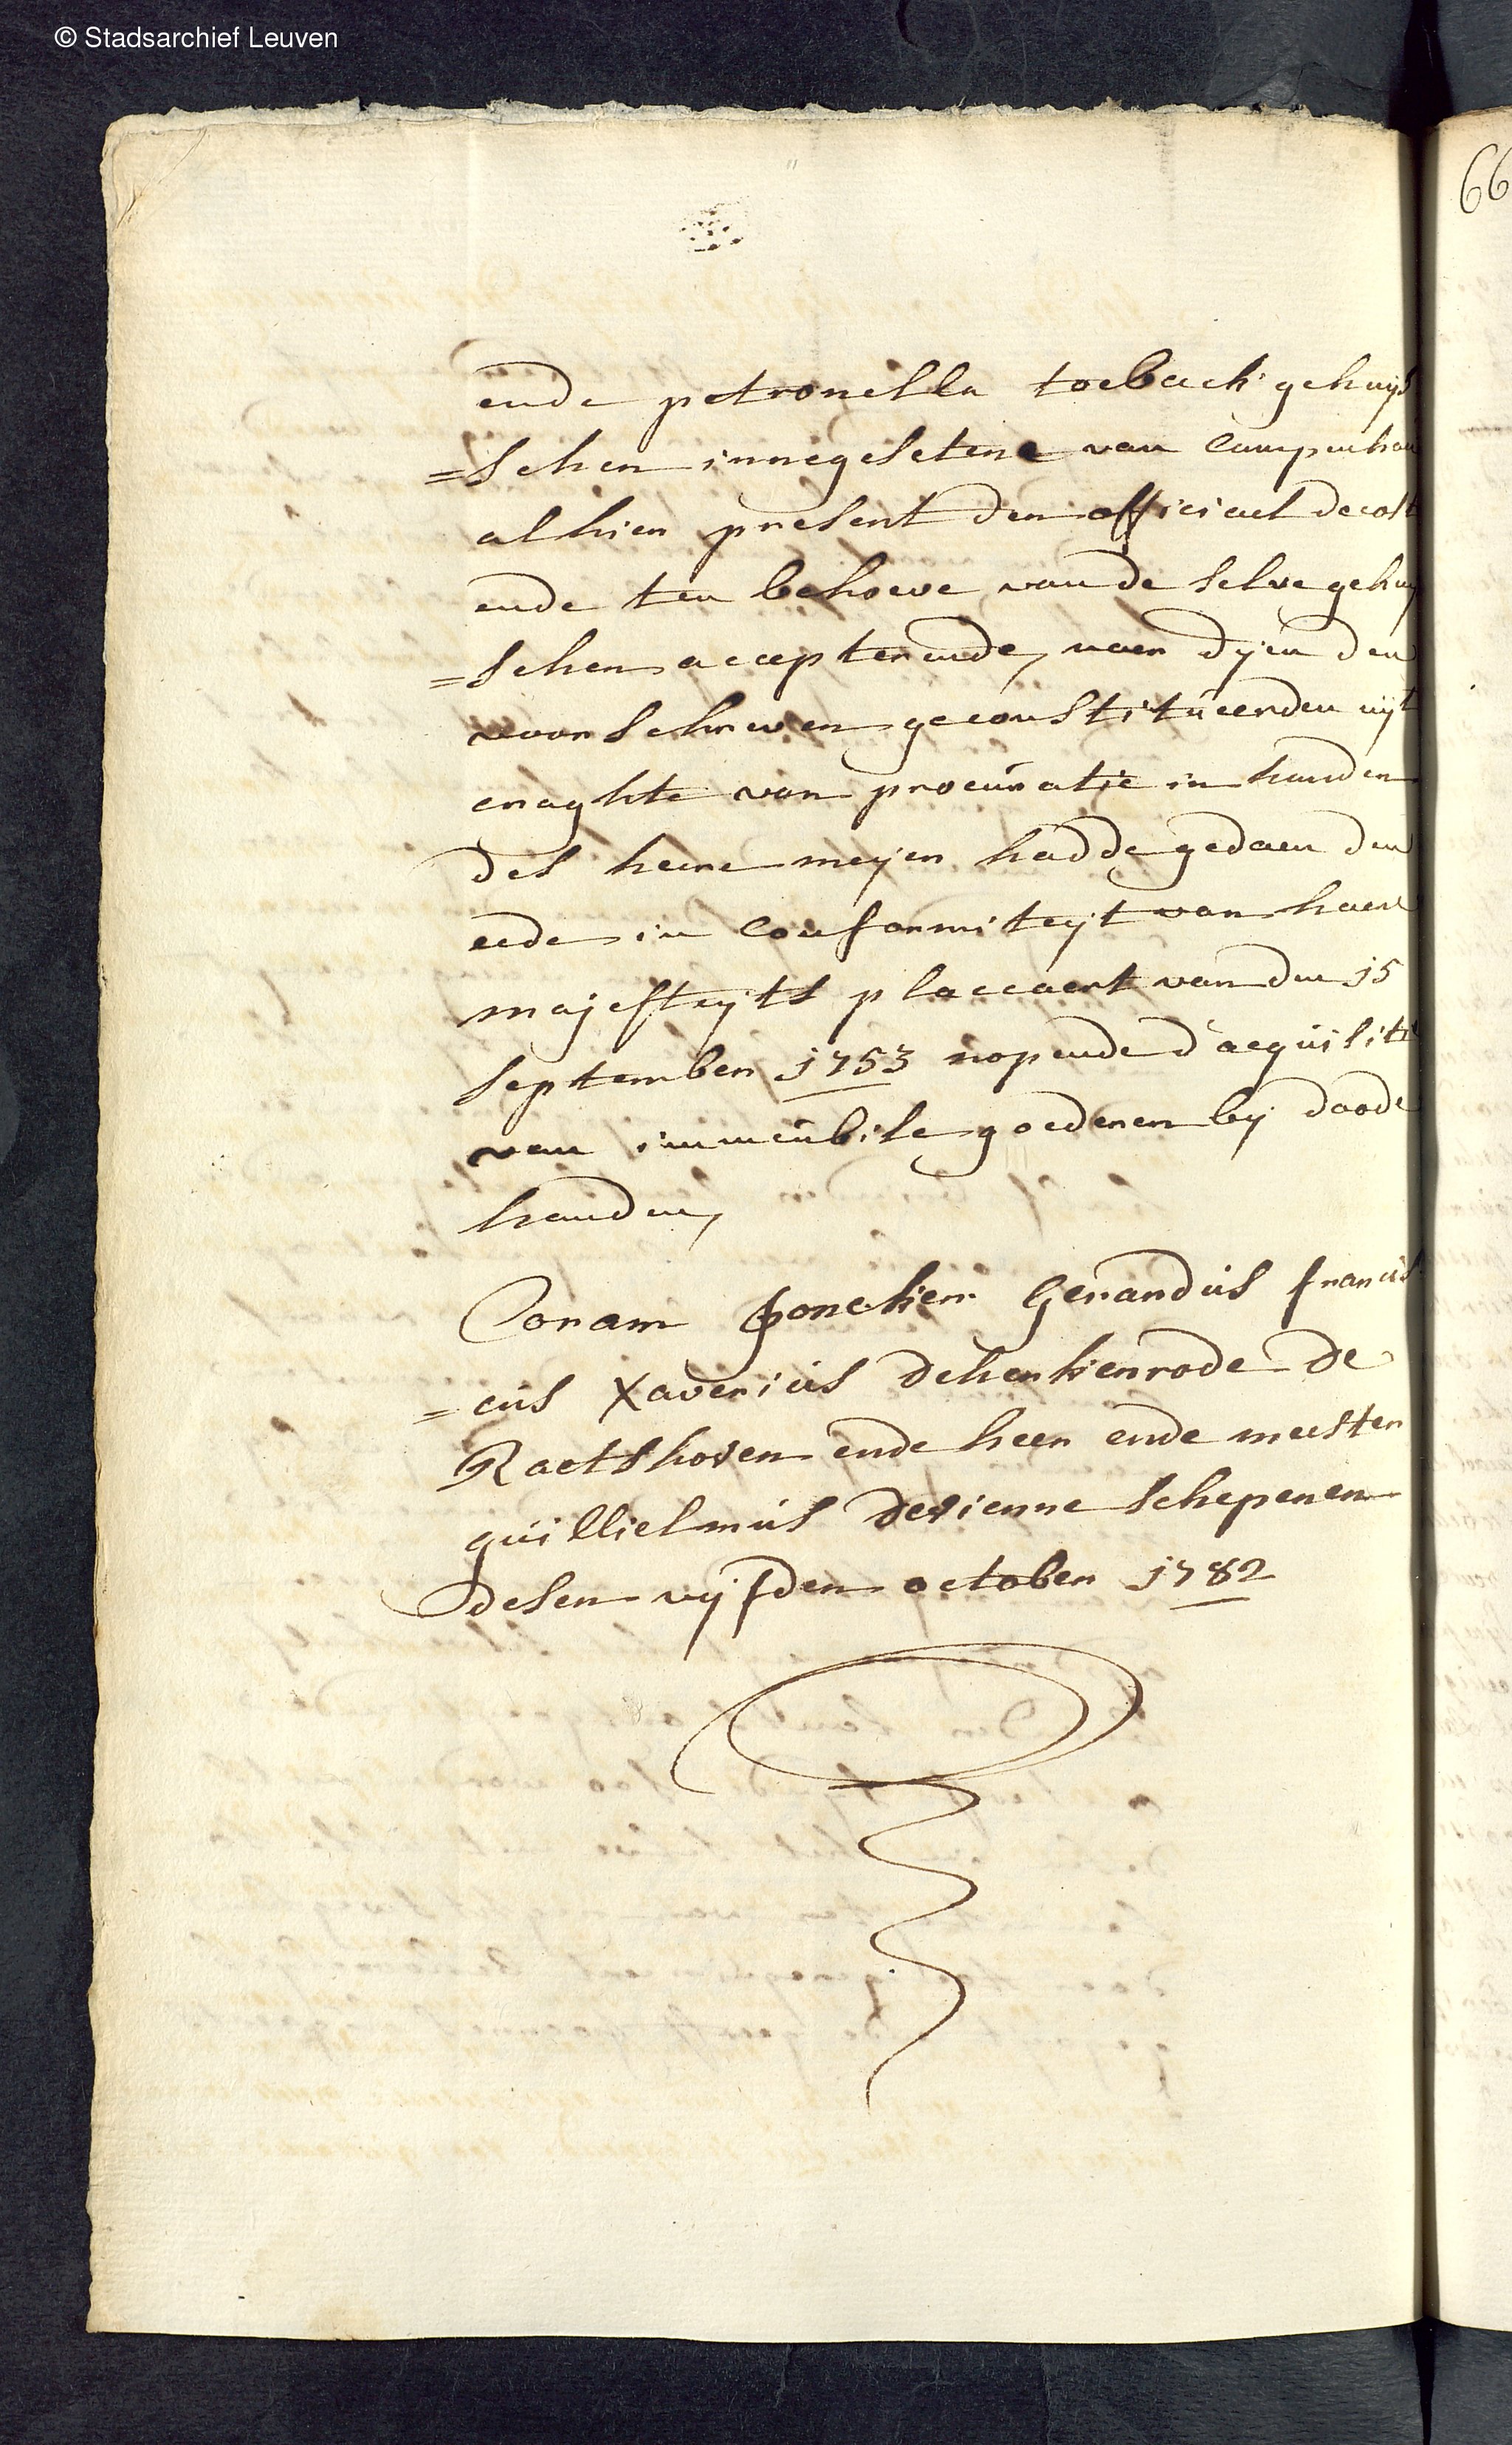 © Stadsarchief Leuven
66
ende petronella toeback gehuijs
=schen innegesetene van Campenhou
alhier present den officiael decost
ende ten behoeve van de selve gehuij
=schen accepterende, naer dijen den
voorschreven geconstitueerden uijt
craghte van procuratie in handen
des heere meijer hadde gedaen den
eede in conformiteijt van haere
majesteijts placcaert van den 15
september 1753 nopende d'aequisitie
van immeubile goederen bij doode
handen,
Coram Joncker Gerardus francis
=cus Xaverius deherkenrode de
Raetshoven ende heer ende meester
guillielmus devienne schepenen
desen vijfden october 1782